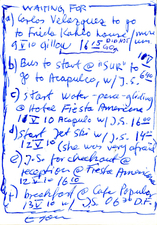 WAITING FOR
a) Carlos Velazquez to go
to Frieda Kahlo house/
9 V 10 Gillow/ 16
b) Bus to start @ 
to go to Acapulco, w/ J.S.
c) start water-para-gliding
@ Hotel Fiesta Americana
V 10 Acapulco w/ J.S. 16
d) start Jet ski w/ J.S. 14
12 V 10 (she was very afraid
e) J.S. for checkout @
reception @ Fiesta American
12 V 10 16 10
f) breakfast @ Cafe Popular
13 V 10 w/ J.S 06 D.F.